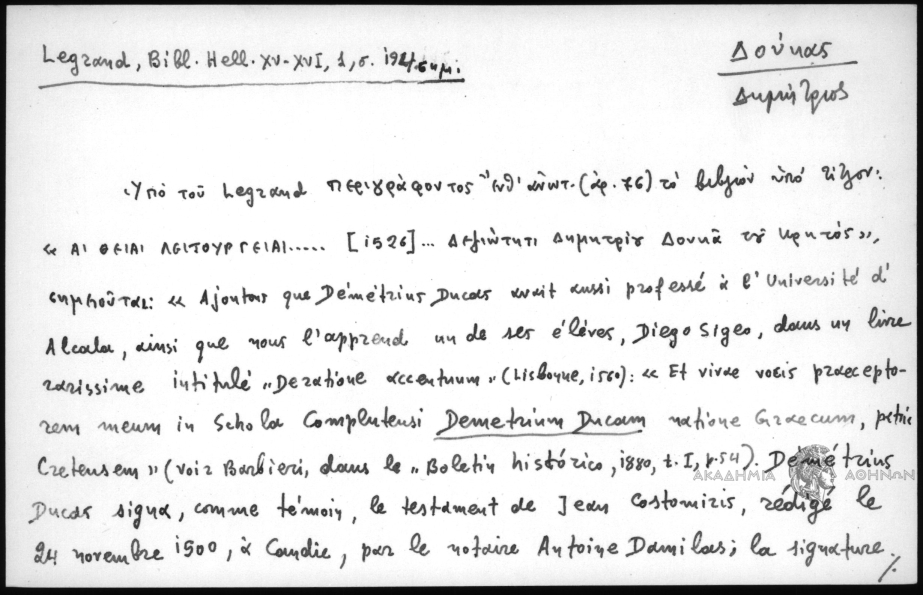 Legrand, Bibl. Hell. XV-XVI, 1, σ. 192, σημ.
Δούκας
Δημήτριος
Ὑπὸ τοῦ Legrand περιγράφοντος ἔνθ' ἀνωτ. (ἀρ. 76) τὸ βιβλίον ὑπό τίτλον:
« ΑΙ ΘΕΙΑΙ ΛΕΙΤΟΥΡΓΕΙΑΙ..... [1526]... Δεξιώτητι Δημητρίου Δουκᾶ τοῦ Κρητός »,
σημειοῦται: « Ajoutons que Démétrius Ducas avait aussi professé à l'Université d'
Alcala, ainsi que nous l'apprend un de ses élèves, Diego Sigeo, dans un livre
rarissime intitulé „De ratione accentuum" (Lisbonne, 1560): « Et vivae vocis praecepto-
rem meum in Schola Complutensi Demetrium Ducam natione Graecum, patria
Cretensem » (voir Barbieri, dans le „Boletin histórico, 1880, t. I, p. 54). Démétrius
ΑΚΑΔΗΜΙΑ ΑΘΗΝΩΝ
Ducas signa, comme témoin, le testament de Jean Costomiris, rédigé le
24 novembre 1500, à Candie, par le notaire Antoine Damilas; la signature
./.